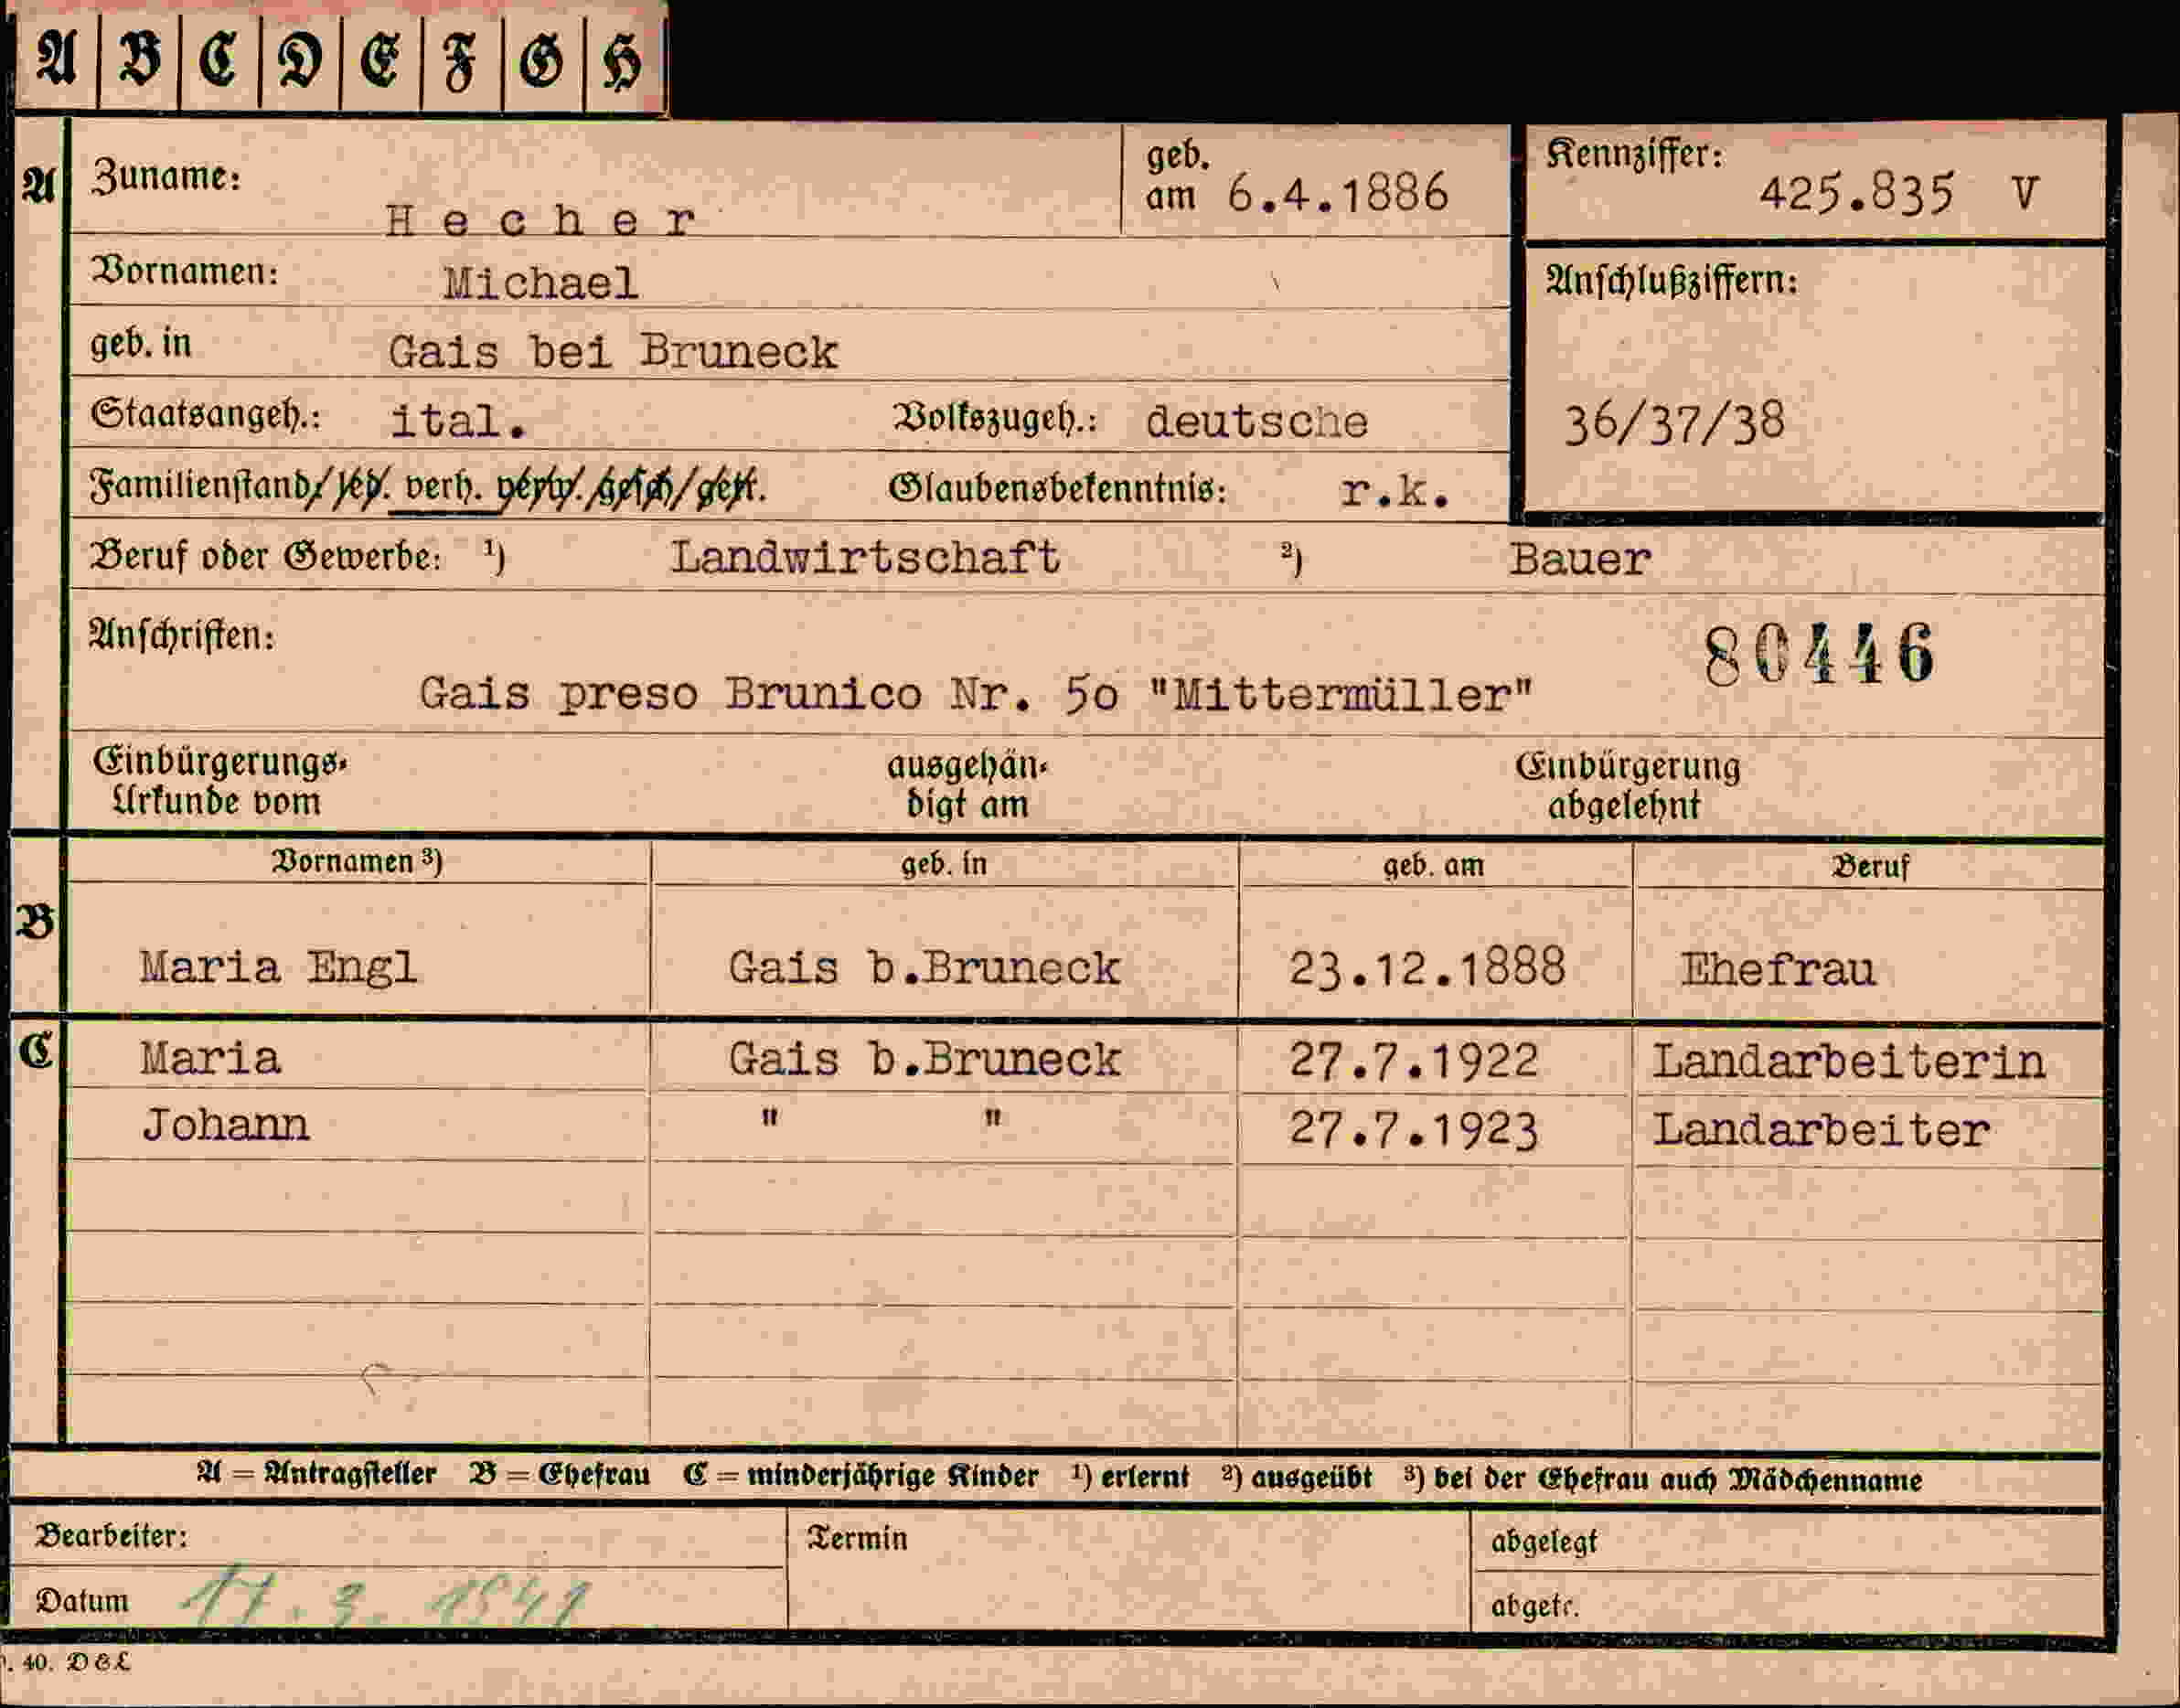 A B C D E F G H
A Zuname: Hecher geb. am 6.4.1886 Kennziffer: 425.835 V
Vornamen: Michael Anschlußziffern:
geb. in Gais bei Bruneck
Staatsangeh.: ital. Volkszugeh.: deutsche 36/37/38
Familienstand/led. verh. verw./gesch/getr. Glaubensbekenntnis: r.k.
Beruf oder Gewerbe: ¹) Landwirtschaft ²) Bauer
Anschriften: 80446
Gais preso Brunico Nr. 5o "Mittermüller"
Einbürgerungs- ausgehän- Einbürgerung
Urkunde vom digt am abgelehnt
Vornamen ³) geb. in geb. am Beruf
B Maria Engl Gais b.Bruneck 23.12.1888 Ehefrau
C Maria Gais b.Bruneck 27.7.1922 Landarbeiterin
Johann " " 27.7.1923 Landarbeiter
A = Antragsteller B = Ehefrau C = minderjährige Kinder ¹) erlernt ²) ausgeübt ³) bei der Ehefrau auch Mädchenname
Bearbeiter: Termin abgelegt
Datum 17. 3. 1941 abgetr.
. 40. D&L